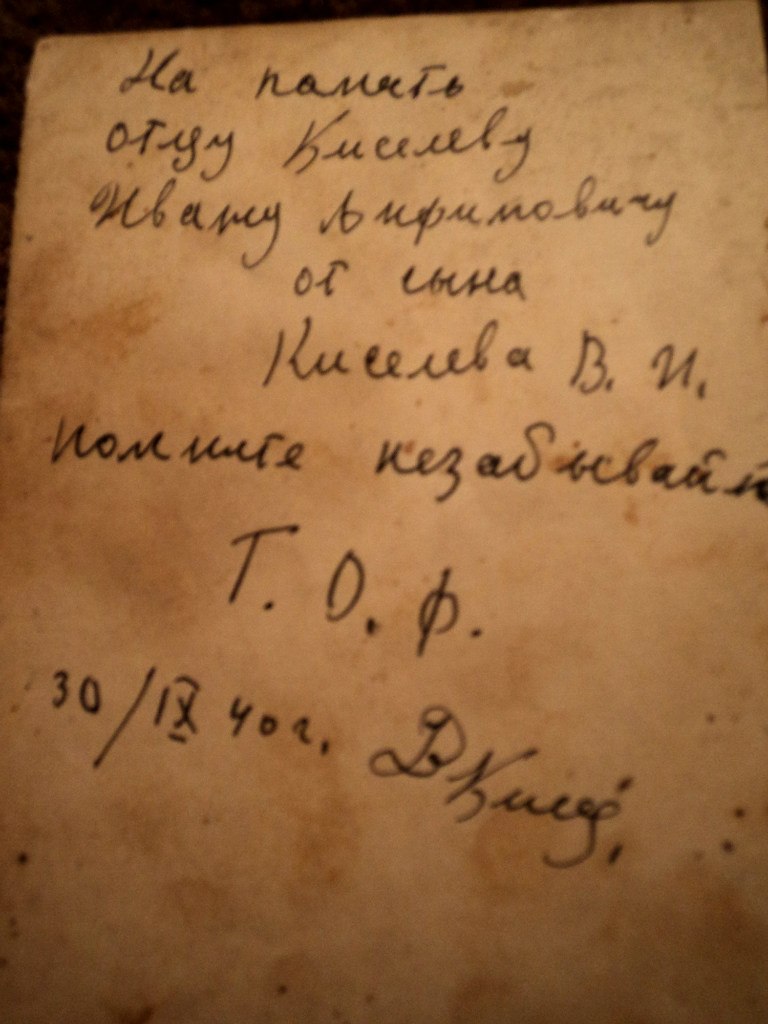 На память
отцу Киселеву
Ивану Анфимовичу
от сына
Киселева В. И.
помните незабывайте
Т. О. Ф.
30/IX 40 г.